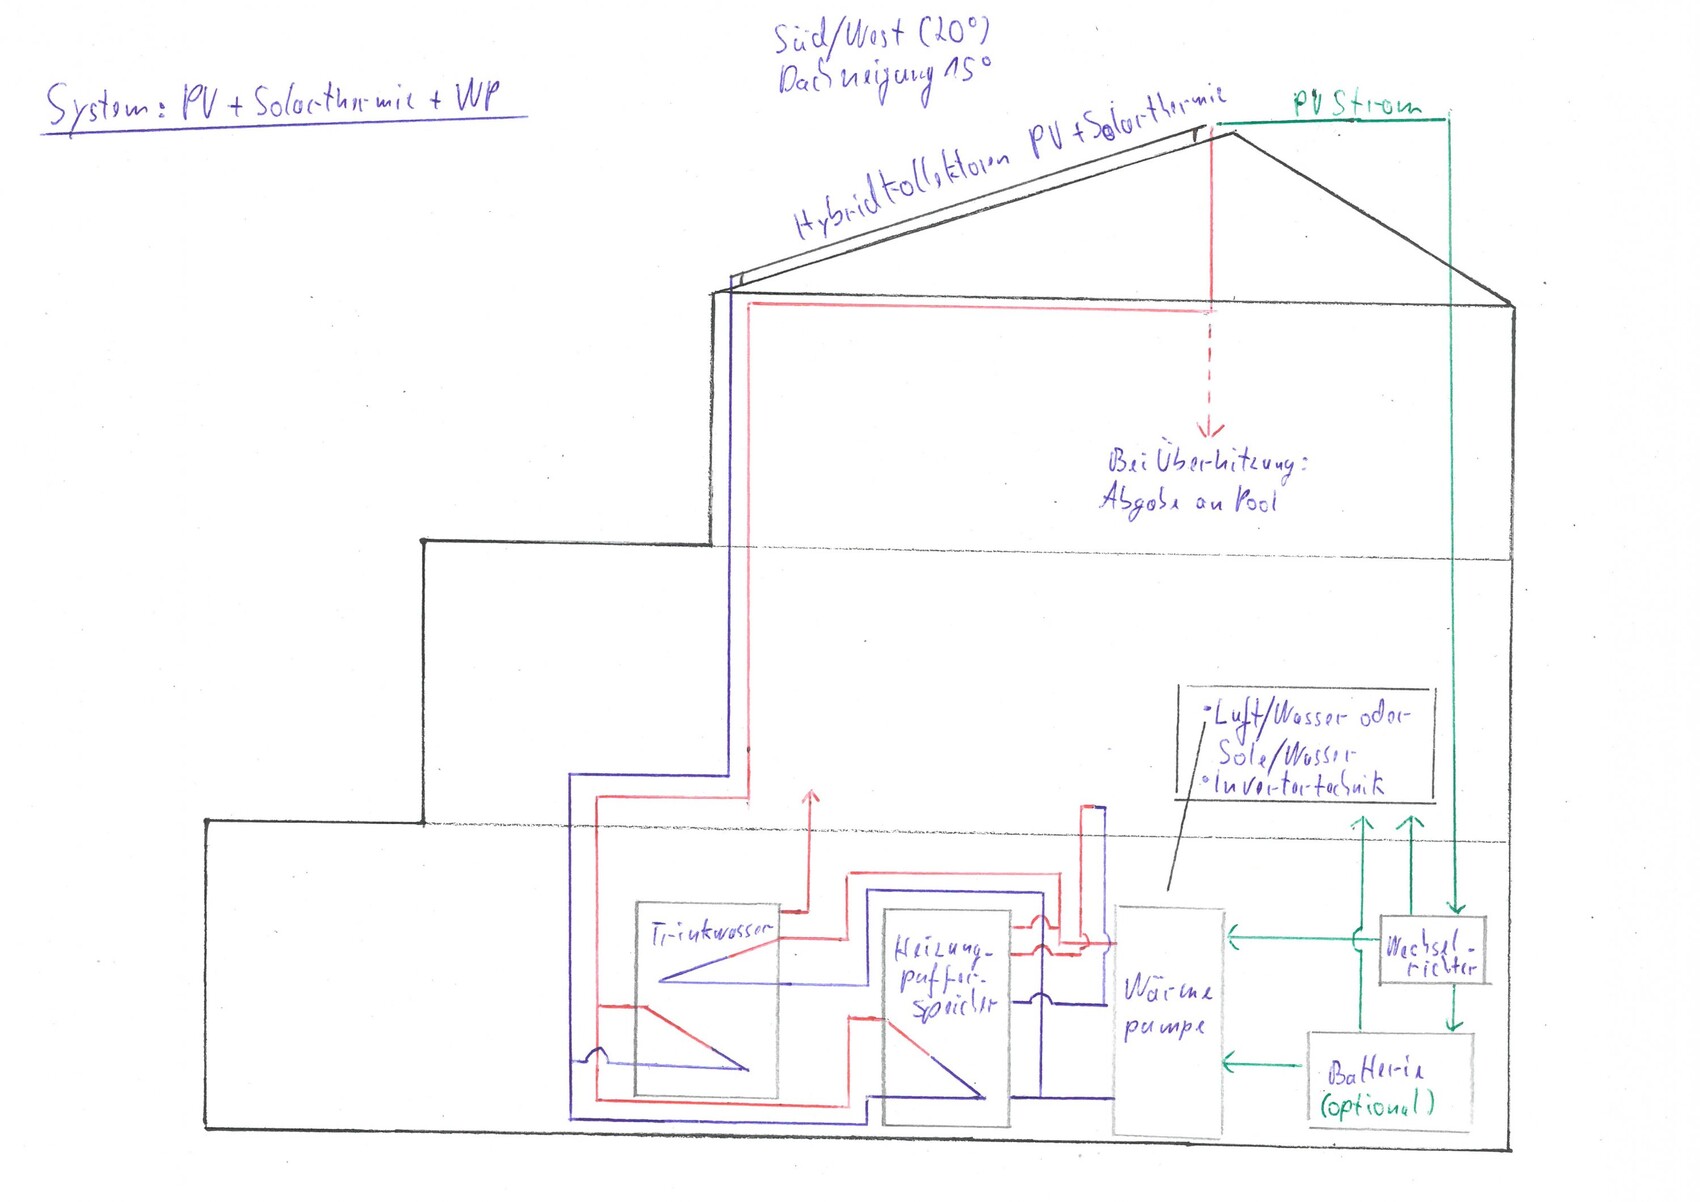 Süd/West (20°)
Dachneigung 15°
System: PV + Solarthermie + WP
Hybridkollektoren PV + Solarthermie
PV Strom
Bei Überhitzung:
Abgabe an Pool
• Luft/Wasser oder
Sole/Wasser
• Invertertechnik
Trinkwasser
Heizung-
puffer-
speicher
Wärme
pumpe
Wechsel-
richter
Batterie
(optional)